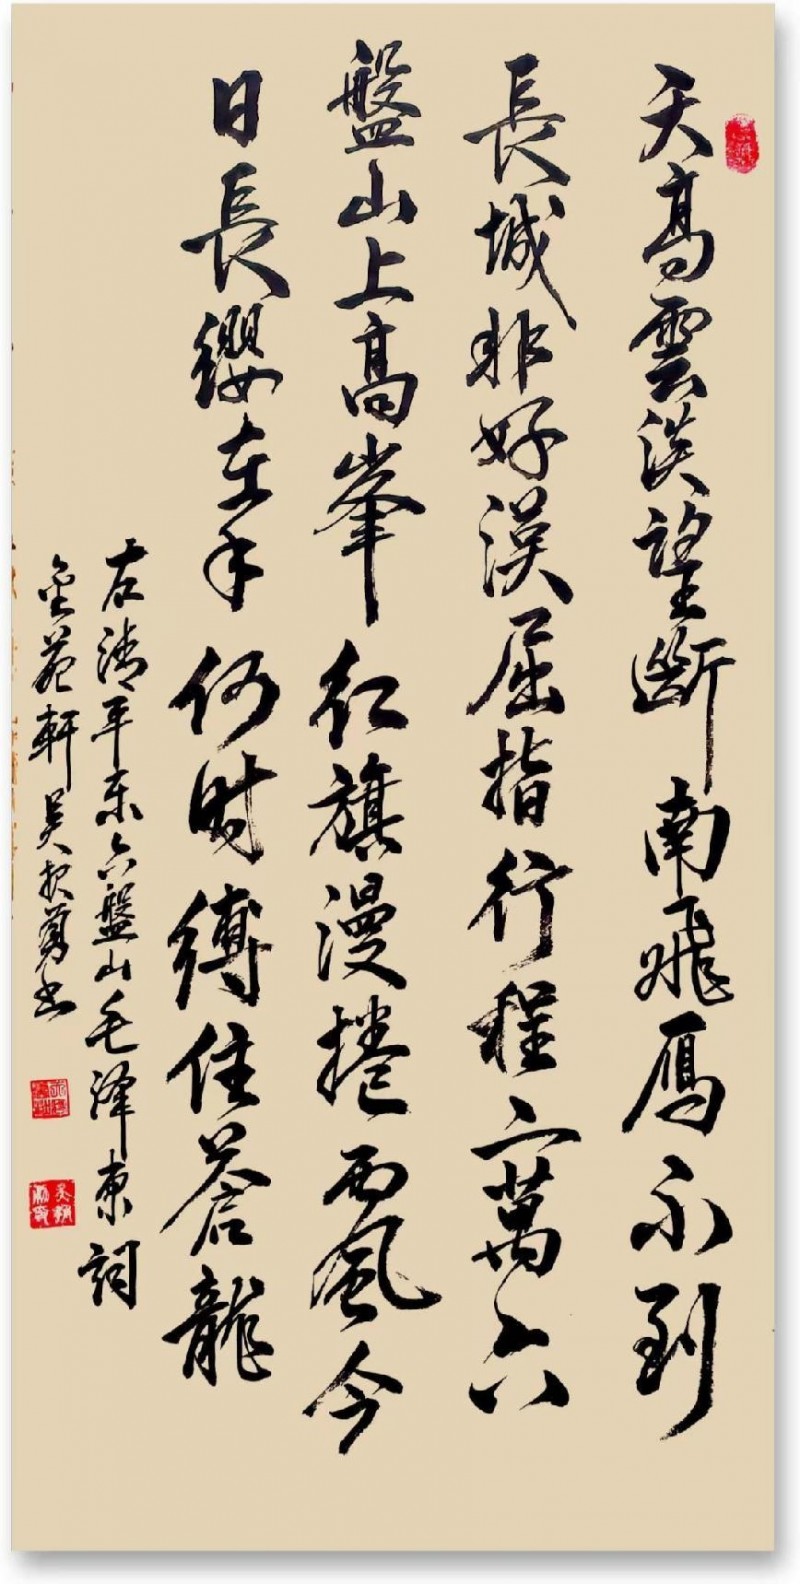 天高雲淡望斷南飛雁不到
長城非好漢屈指行程二萬六
盤山上高峯紅旗漫捲西風今
日長纓在手何时縛住蒼龍
右清平乐六盤山毛泽東詞
軒吴勇书